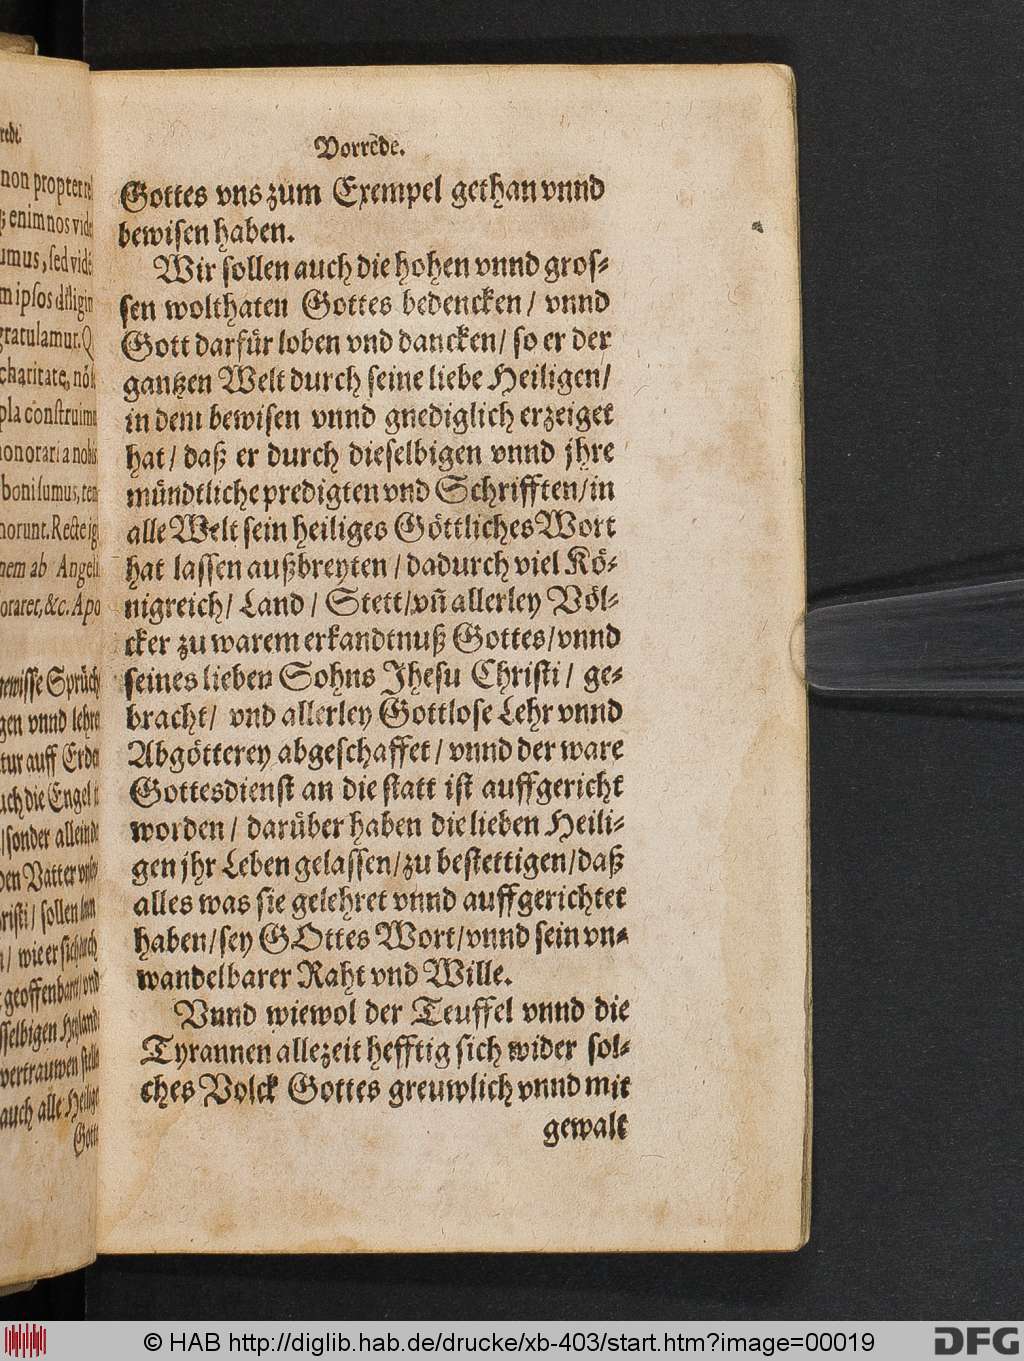 Vorrede.
Gottes vns zum Exempel gethan vnnd
bewisen haben.
Wir sollen auch die hohen vnnd gros-
sen wolthaten Gottes bedencken / vnnd
Gott darfür loben vnd dancken / so er der
gantzen Welt durch seine liebe Heiligen /
in dem bewisen vnnd gnediglich erzeiget
hat / daß er durch dieselbigen vnnd jhre
mündtliche predigten vnd Schrifften / in
alle Welt sein heiliges Göttliches Wort
hat lassen außbreyten / dadurch viel Kö-
nigreich / Land / Stett / vñ allerley Völ-
cker zu warem erkandtnuß Gottes / vnnd
seines lieben Sohns Jhesu Christi / ge-
bracht / vnd allerley Gottlose Lehr vnnd
Abgötterey abgeschaffet / vnnd der ware
Gottesdienst an die statt ist auffgericht
worden / darüber haben die lieben Heili-
gen jhr Leben gelassen / zu bestettigen / daß
alles was sie gelehret vnnd auffgerichtet
haben / sey GOttes Wort / vnnd sein vn-
wandelbarer Raht vnd Wille.
Vnnd wiewol der Teuffel vnnd die
Tyrannen allezeit hefftig sich wider sol-
ches Volck Gottes greuwlich vnnd mit
gewalt
non propter
enim nos
umus, sed
ipsos
gratulamur.
charitate,
honorari a nobis
boni sumus,
Recte
ab Angeli
&c. Apo
gewisse Sprüch
vnnd lehre
auff Erden
auch die Engel
/ sonder allein
den Vatter
/ sollen
/ wie er sich auch
geoffenbaret / vnd
vertrauwen
auch alle Heilige
Gott
© HAB http://diglib.hab.de/drucke/xb-403/start.htm?image=00019
DFG